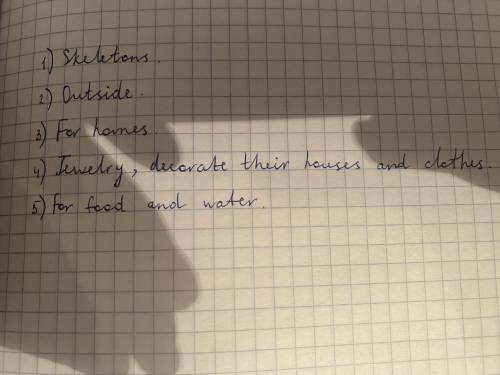 1) Skeletons.
2) Outside.
3) For homes.
4) Jewelry, decorate their houses and clothes.
5) For food and water.